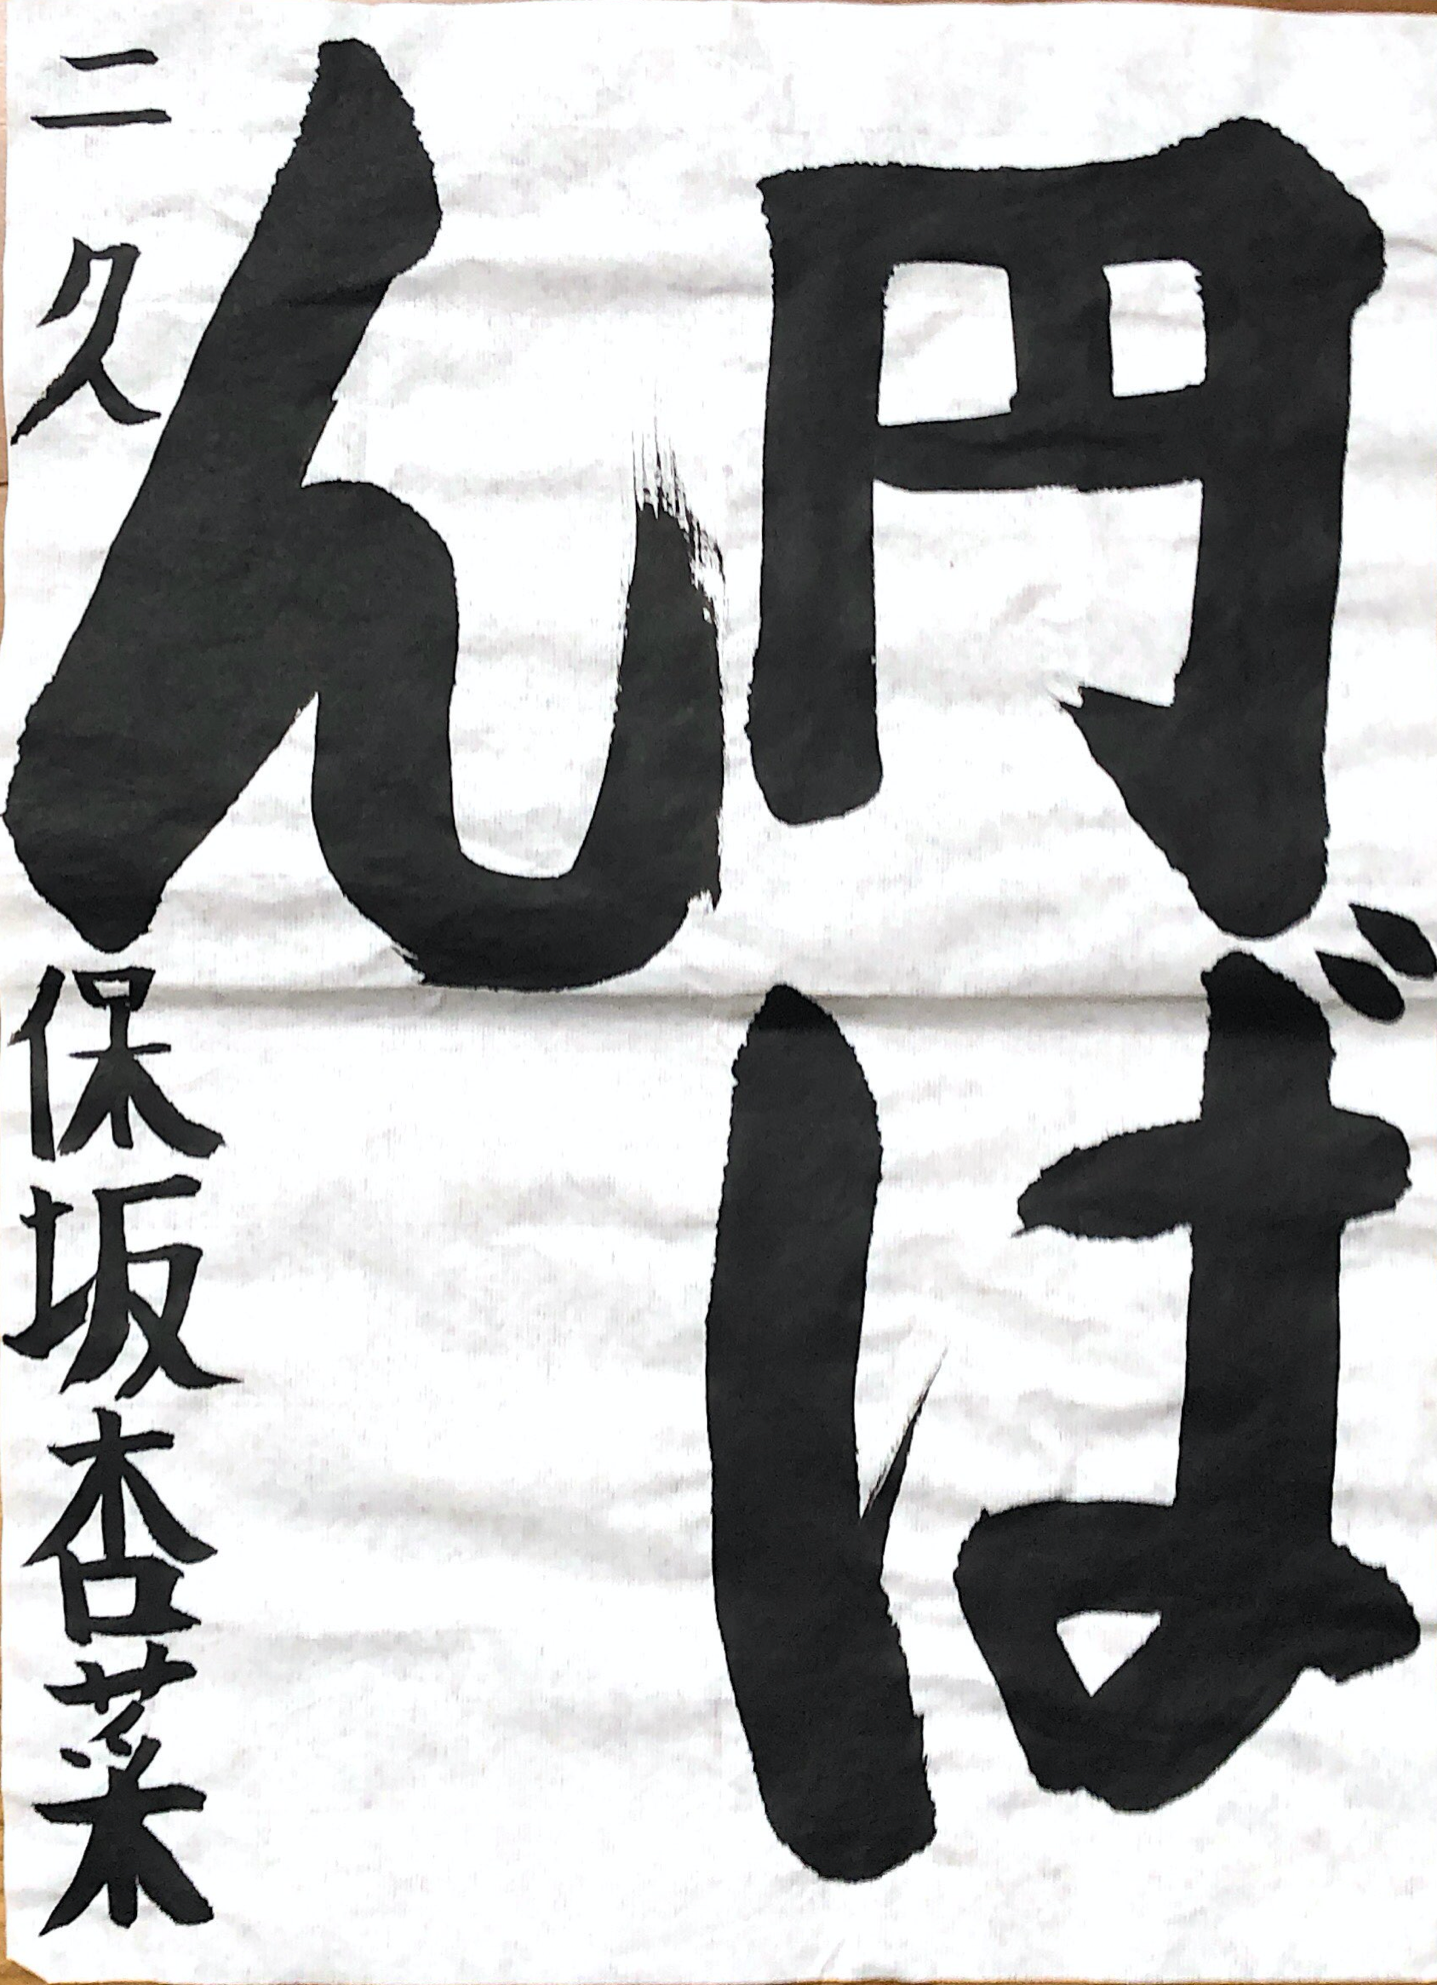 円ば
ん
二久 保坂杏菜